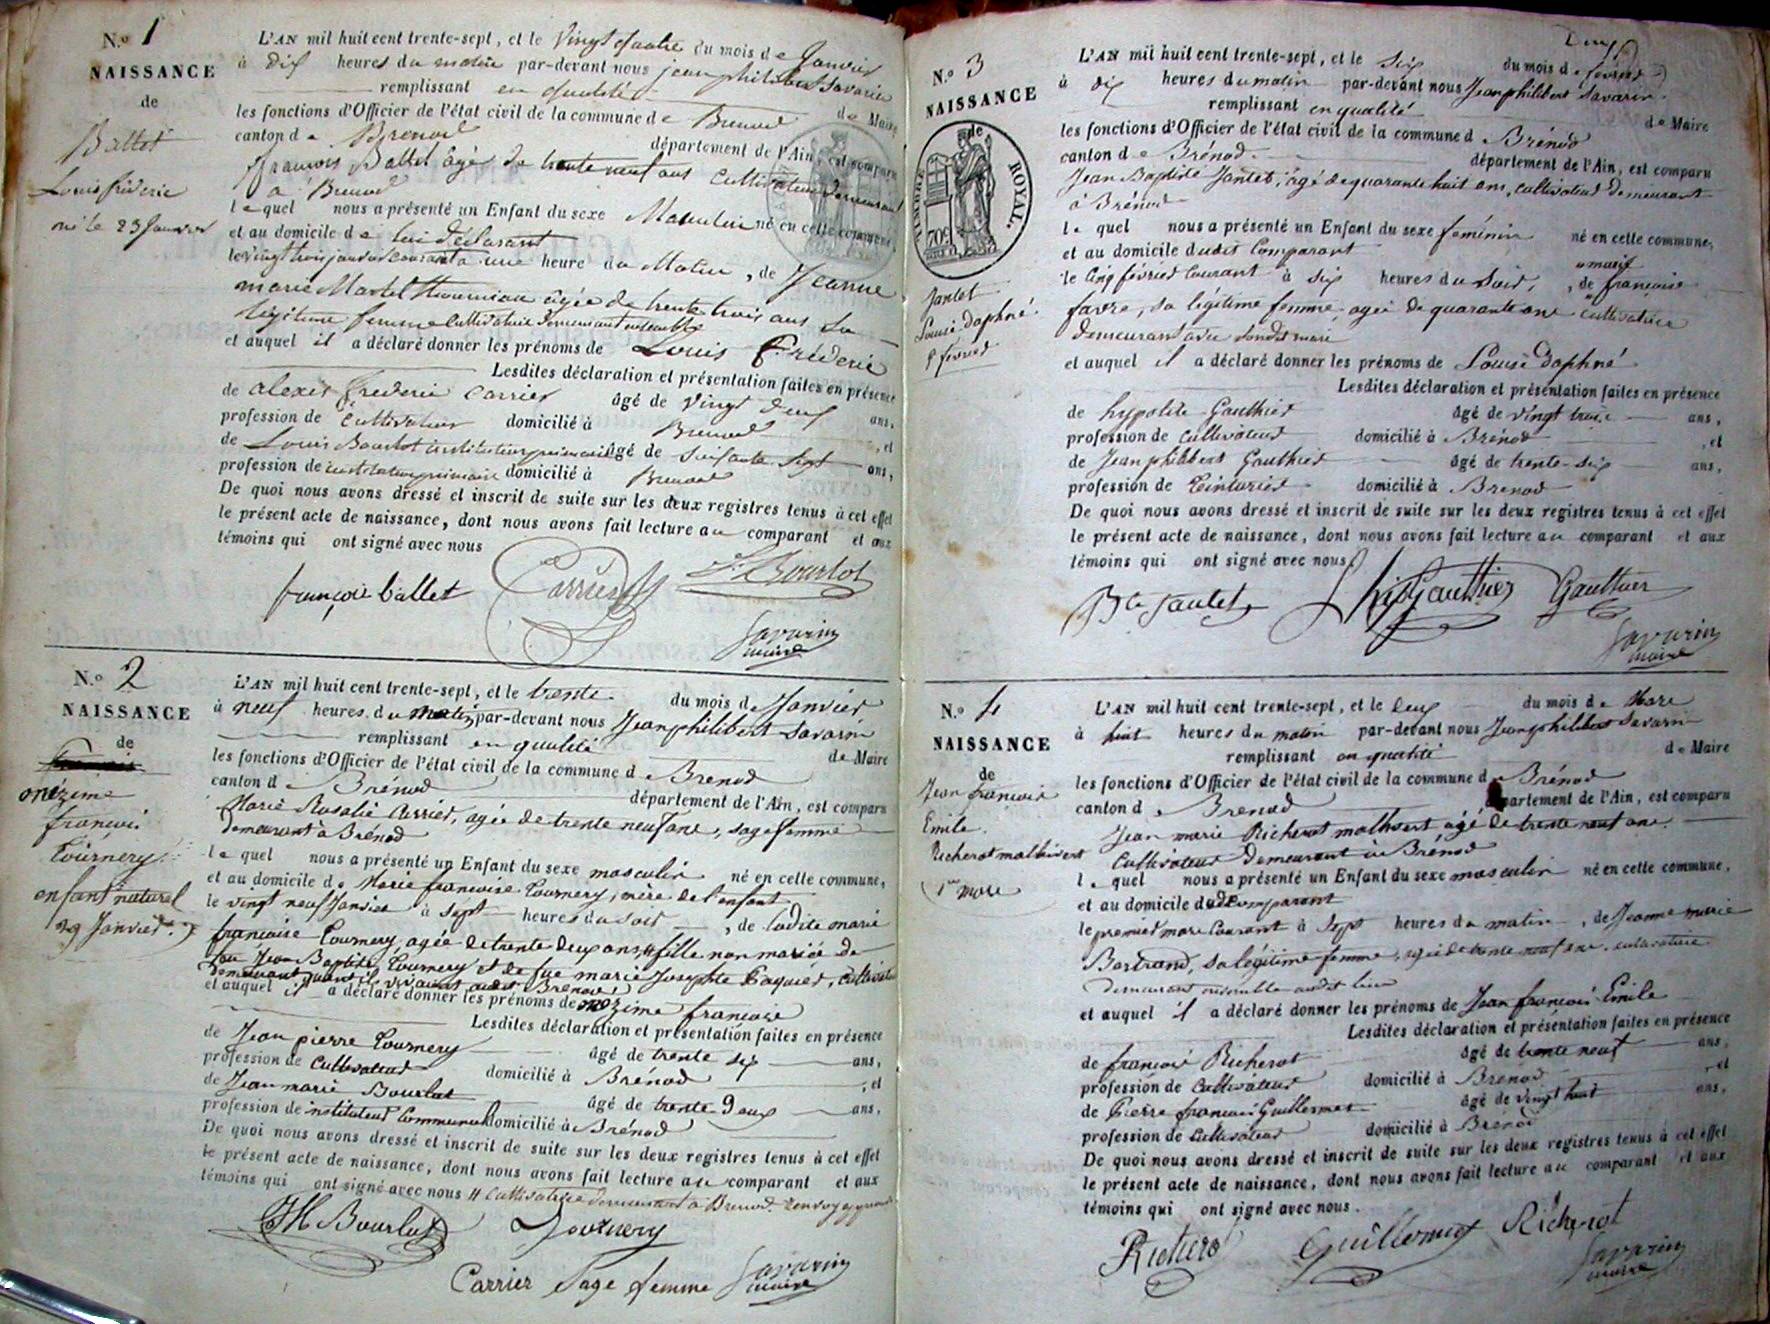 N.º 1
NAISSANCE
de
Ballet
Louis fréderic
né le 23 Janvier
L'AN mil huit cent trente-sept, et le Vingt quatre du mois de Janvier
à dix heures du matin par-devant nous jean philibert Savarin
remplissant en qualité de Maire
les fonctions d'Officier de l'état civil de la commune de Brenod
canton de Brenod département de l'Ain, est comparu
françois Ballet âgé de trente neuf ans cultivateur demeurant
à Brenod
lequel nous a présenté un Enfant du sexe Masculin né en cette commune,
et au domicile de lui déclarant
le vingt trois janvier courant à une heure du Matin, de Jeanne
marie Martel âgée de trente trois ans sa
légitime femme Cultivatrice demeurant ensemble
et auquel il a déclaré donner les prénoms de Louis fréderic
Lesdites déclaration et présentation faites en présence
de alexis frederic Carrier âgé de vingt deux ans,
profession de Cultivateur domicilié à Brenod, et
de Louis Bourlot instituteur primaire âgé de soixante sept ans,
profession de instituteur primaire domicilié à Brenod
De quoi nous avons dressé et inscrit de suite sur les deux registres tenus à cet effet
le présent acte de naissance, dont nous avons fait lecture au comparant et aux
témoins qui ont signé avec nous
françois ballet Carrier Bourlot
Savarin
maire
N.º 2
NAISSANCE
de
onézime
francois
Tournery
enfant naturel
29 Janvier
L'AN mil huit cent trente-sept, et le trente du mois de Janvier
à neuf heures du matin par-devant nous Jean philibert Savarin
remplissant en qualité de Maire
les fonctions d'Officier de l'état civil de la commune de Brenod
canton de Brénod département de l'Ain, est comparu
Marie Rosalie Carrier, agée de trente neuf ans, sage femme
demeurant à Brénod
lequel nous a présenté un Enfant du sexe masculin né en cette commune,
et au domicile de Marie francoise Tournery, mère de l'enfant
le vingt neuf Janvier à sept heures du soir, de ladite marie
francoise Tournery, agée de trente deux ans, // fille non mariée de
feu Jean Baptiste Tournery et de fue marie Josephte Paquier, cultivateurs
demeurant quant ils vivaient audit Brénod
et auquel il a déclaré donner les prénoms de onezime francois
Lesdites déclaration et présentation faites en présence
de Jean pierre Tournery âgé de trente six ans,
profession de Cultivateur domicilié à Brénod, et
de Jean marie Bourlot âgé de trente deux ans,
profession de instituteur Communal domicilié à Brénod
De quoi nous avons dressé et inscrit de suite sur les deux registres tenus à cet effet
le présent acte de naissance, dont nous avons fait lecture au comparant et aux
témoins qui ont signé avec nous // Cultivatrice demeurant à Brenod
JM Bourlot Tournery
Carrier Sage femme Savarin
maire
N.º 3
NAISSANCE
de
TIMBRE ROYAL
70c
Jantet
Louise daphné
5 février
L'AN mil huit cent trente-sept, et le six du mois de février
à dix heures du matin par-devant nous Jean philibert Savarin
remplissant en qualité de Maire
les fonctions d'Officier de l'état civil de la commune d Brénod
canton de Brénod département de l'Ain, est comparu
Jean Baptiste Jantet, agé de quarante huit ans, cultivateur demeurant
à Brénod
lequel nous a présenté un Enfant du sexe féminin né en cette commune,
et au domicile dudit Comparant
le cinq février courant à six heures du soir, de françoise
favre, sa légitime femme agée de quarante ans cultivatrice
demeurant avec sondit mari
et auquel il a déclaré donner les prénoms de Louise daphné
Lesdites déclaration et présentation faites en présence
de hypolite Gauthier âgé de vingt trois ans,
profession de cultivateur domicilié à Brénod, et
de Jean philibert Gauthier âgé de trente-six ans,
profession de teinturier domicilié à Brenod
De quoi nous avons dressé et inscrit de suite sur les deux registres tenus à cet effet
le présent acte de naissance, dont nous avons fait lecture au comparant et aux
témoins qui ont signé avec nous
Bte Jantet Hip Gauthier Gauthier
Savarin
maire
N.º 4
NAISSANCE
de
Jean francois
Emile
Richerot malhivert
1er mars
L'AN mil huit cent trente-sept, et le deux du mois de Mars
à huit heures du matin par-devant nous Jean philibert Savarin
remplissant en qualité de Maire
les fonctions d'Officier de l'état civil de la commune d Brénod
canton de Brenod département de l'Ain, est comparu
Jean marie Richerot malhivert agé de trente neuf ans
Cultivateur demeurant à Brénod
lequel nous a présenté un Enfant du sexe masculin né en cette commune,
et au domicile dudit comparant
le premier mars Courant à Sept heures du matin, de Jeanne marie
Bertrand, sa légitime femme, agée de trente neuf ans, cultivatrice
demeurant ensemble audit lieu
et auquel il a déclaré donner les prénoms de Jean francois Emile
Lesdites déclaration et présentation faites en présence
de francois Richerot âgé de trente neuf ans,
profession de Cultivateur domicilié à Brénod, et
de Pierre francois Guillermet âgé de vingt huit ans,
profession de Cultivateur domicilié à Brénod
De quoi nous avons dressé et inscrit de suite sur les deux registres tenus à cet effet
le présent acte de naissance, dont nous avons fait lecture au comparant et aux
témoins qui ont signé avec nous.
Guillermet Richerot
Savarin
maire